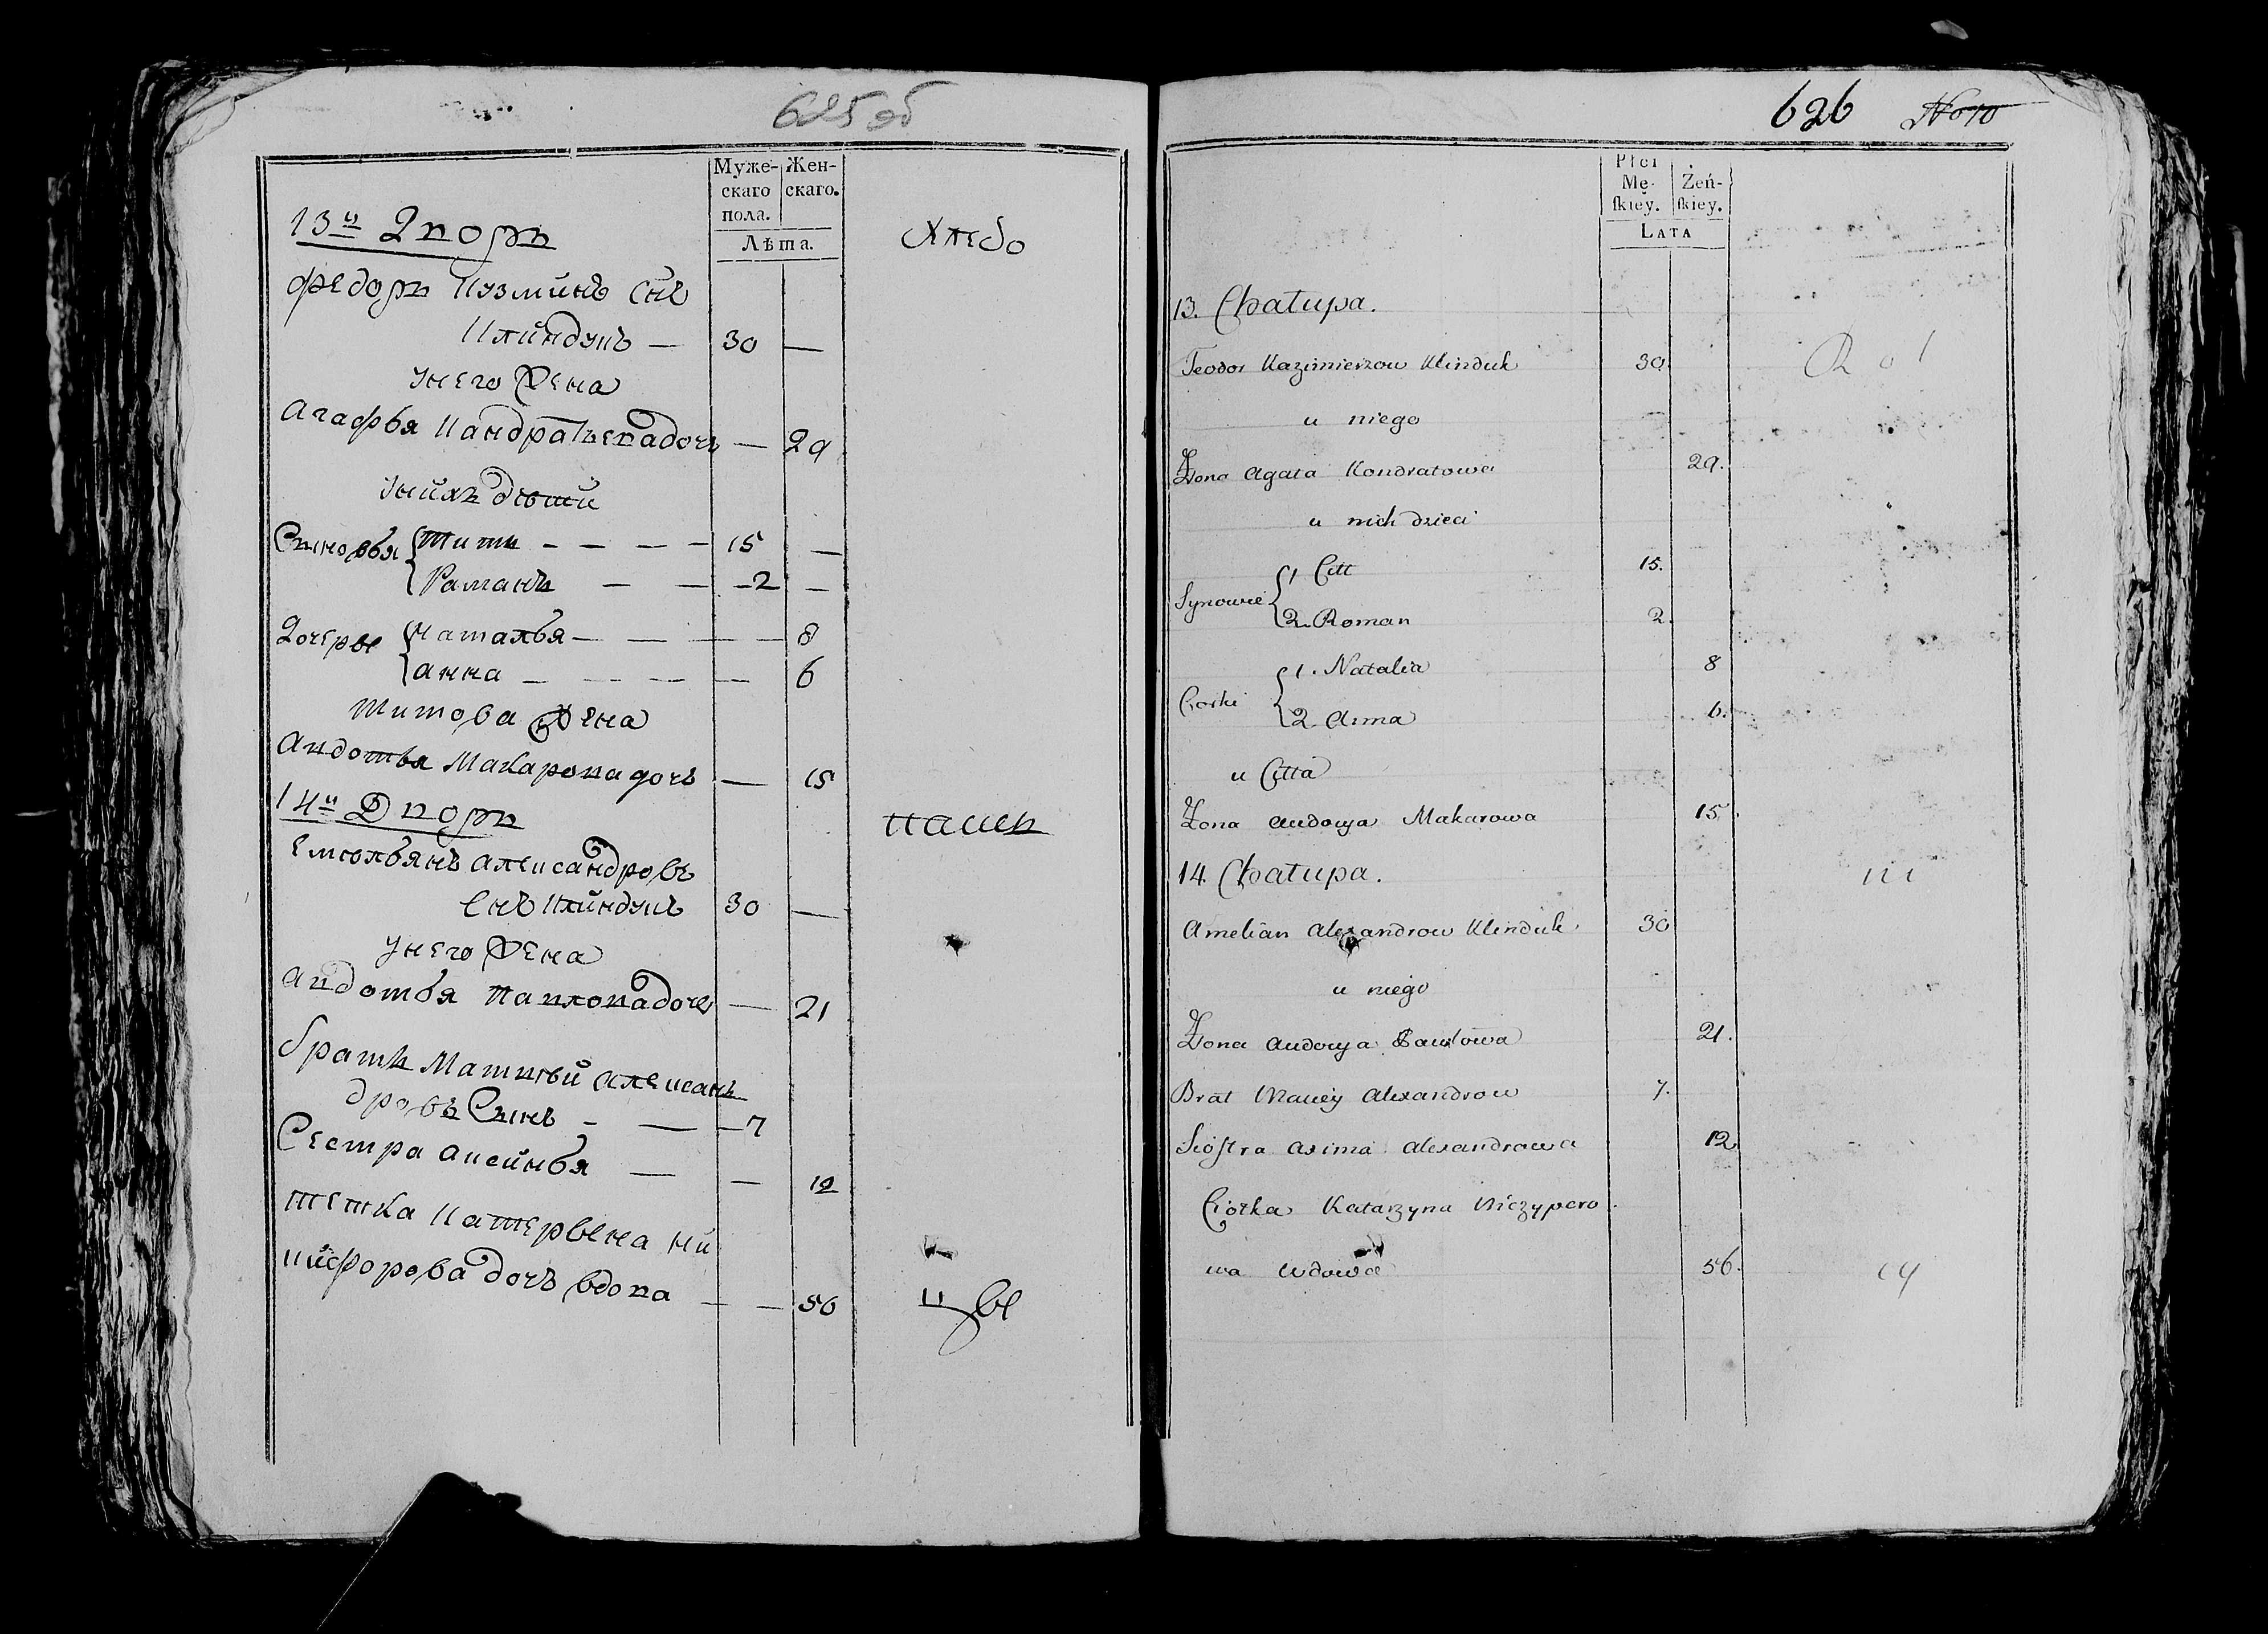 625 об
Муже- Жен-
скаго скаго.
пола.
Лѣта.
13й Дворъ
Хлебо
Федоръ Кузминъ Снъ
Клиндукъ — 30 —
Унего Жена
Агафья Кандратьевадочь — 29
Унихъ дѣти
Сыновья Титъ - - - - 15 —
Раманъ — — - 2 —
Дочеры Наталья — — — — 8
Анна — - - - — 6
Титова Жена
Авдотья Макаровадочь — 15
14й Дворъ
пашец
Емѣльянъ Александровъ
Снъ Клиндукъ 30 —
Унего Жена
Авдотья Павловадочь — 21
братъ Матвѣй Алексан
дровъ Сынъ - — — 7
Сестра Аксинья — — 12
тетка Катерына Ни
кифорова дочь вдова — — 56
цы
626 No 10
Płci
Mę- Żeń-
ſkiey. ſkiey.
LATA
13. Chałupa.
Teodor Kazimierzow Klinduk 30.
u niego
Żona Agata Kondratowa 29.
u nich dzieci
Synowie 1 Citt 15.
2. Roman 2.
Corki 1. Natalia 8
2. Anna 6.
u Citta
Żona Audocya Makarowa 15.
14. Chałupa.
Amelian Alexandrow Klinduk 30
u niego
Żona Audocya Pawłowa 21.
Brat Maciey Alexandrow 7.
Siostra Axima Alexandrowa 12
Ciotka Katarzyna Niczyporo
wa Wdowa 56.